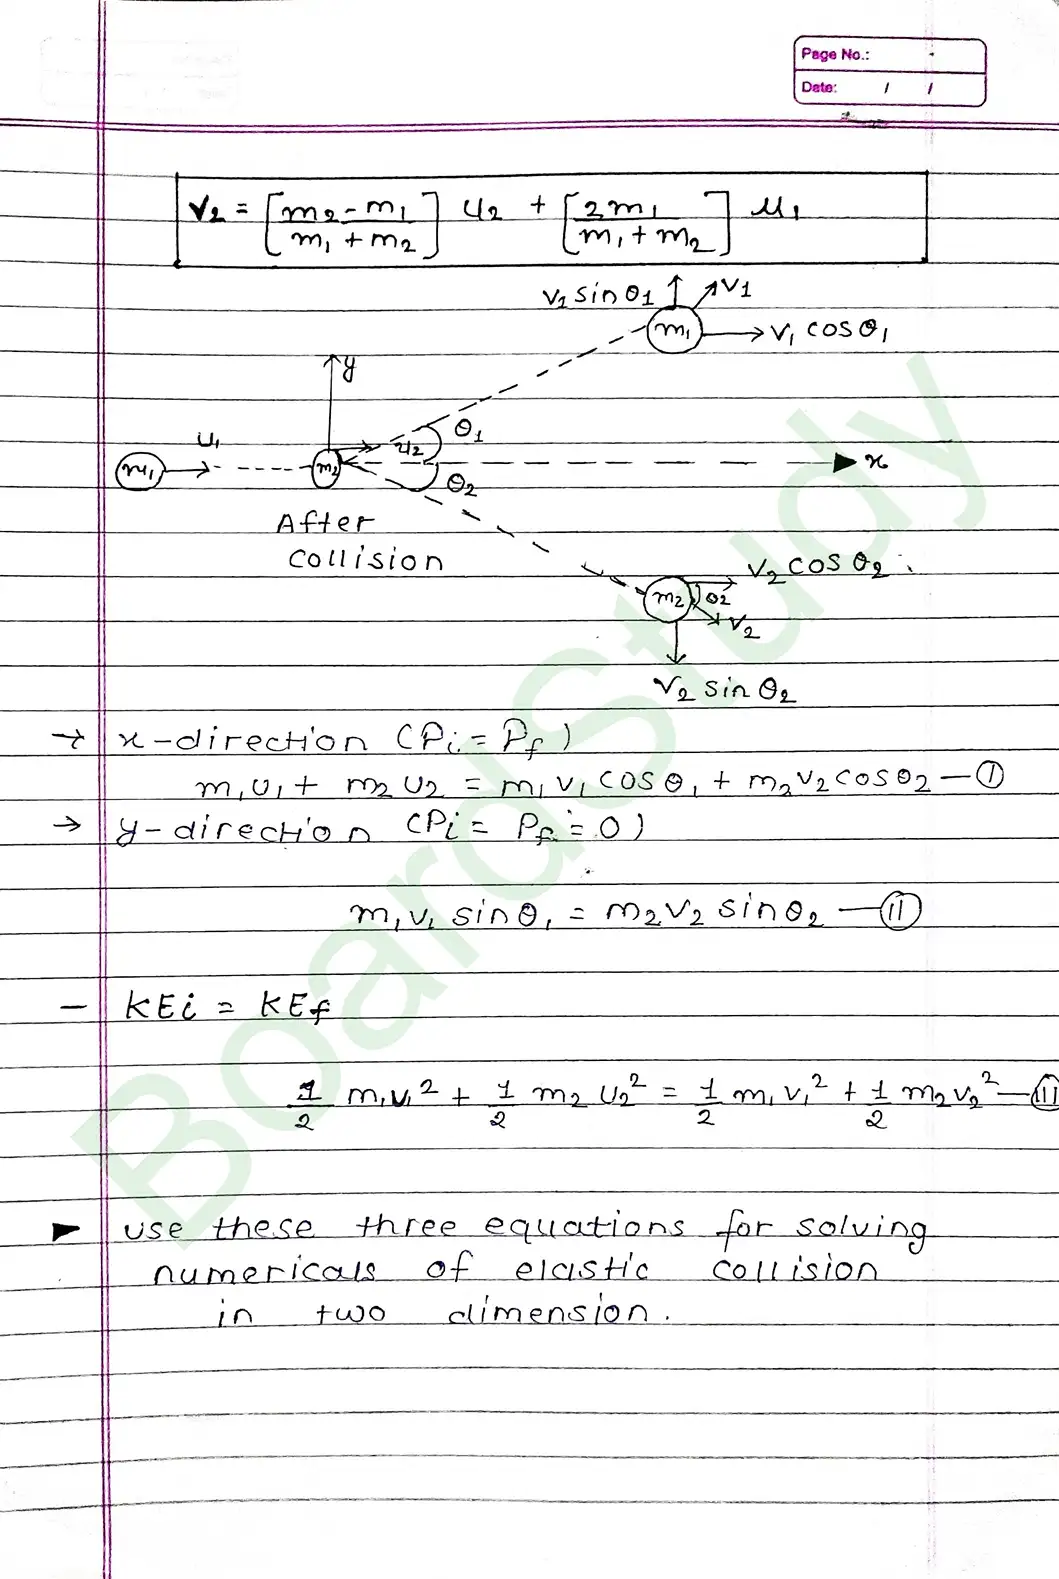 Page No.:
Date: / /
v₂ = [m₂-m₁ / m₁+m₂] u₂ + [2m₁ / m₁+m₂] u₁
v₁ sinθ₁ v₁
m₁ v₁ cosθ₁
y
u₁ u₂ θ₁
m₁ m₂ x
θ₂
After
collision
v₂ cosθ₂
m₂ θ₂
v₂
v₂ sinθ₂
→ x-direction (Pi = Pf)
m₁u₁ + m₂u₂ = m₁v₁cosθ₁ + m₂v₂cosθ₂ — Ⅰ
→ y-direction (Pi = Pf = 0)
m₁v₁ sinθ₁ = m₂v₂ sinθ₂ — Ⅱ
- KEi = KEf
1/2 m₁u₁² + 1/2 m₂u₂² = 1/2 m₁v₁² + 1/2 m₂v₂² — Ⅲ
► use these three equations for solving
numericals of elastic collision
in two dimension.
BoardStudy